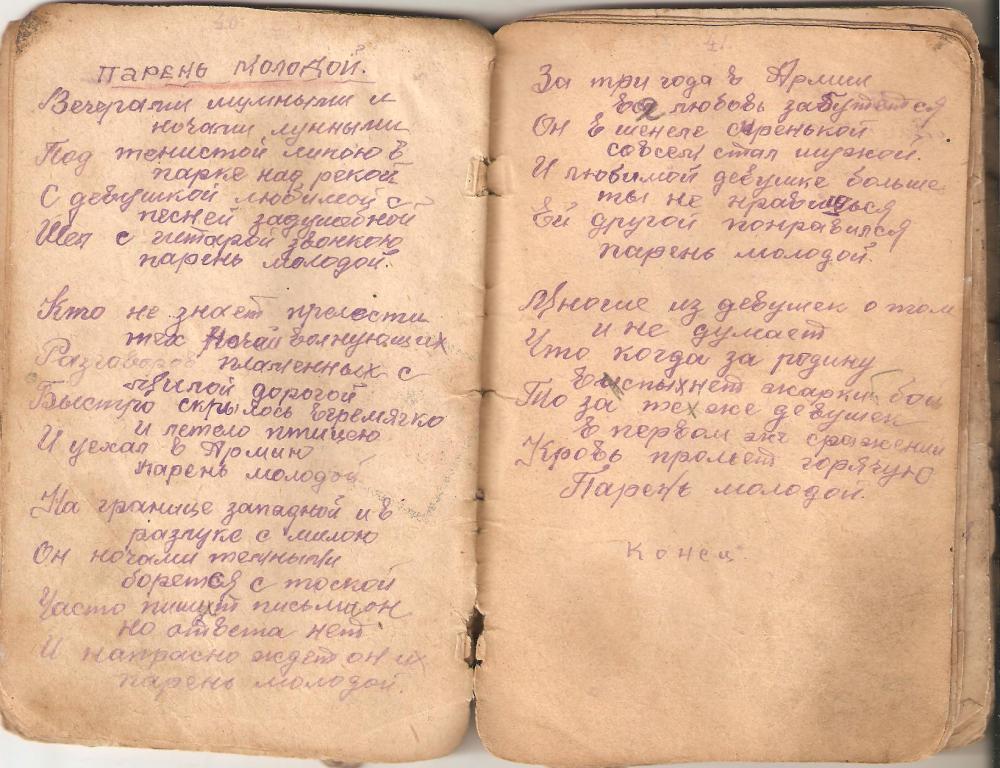 40.
ПАРЕНЬ МОЛОДОЙ.
Вечерами шумными и
ночами лунными
Под тенистой липою в
парке над рекой
С девушкой любимой с
песней задушевной
Шел с гитарой звонкою
парень молодой.
Кто не знает прелести
тех ночей волнующих
Разговоров пламенных с
милой дорогой
Быстро скрылось
и летело птицею
И уехал в Армию
парень молодой
На границе западной и в
разлуке с милою
Он ночами темными
борется с тоской
Часто пишет письма он
но ответа нет
И напрасно ждет он их
парень молодой.
41.
За три года в Армии
вся любовь забудется
Он в шенеле серенькой
совсем стал чужой.
И любимой девушке больше
ты не нравишься
Ей другой понравился
парень молодой.
Многие из девушек о том
и не думает
Что когда за родину
вспыхнет жаркий бой
То за тех же девушек
в первом же сражении
Кровь прольет горячую
Парень молодой.
Конец.